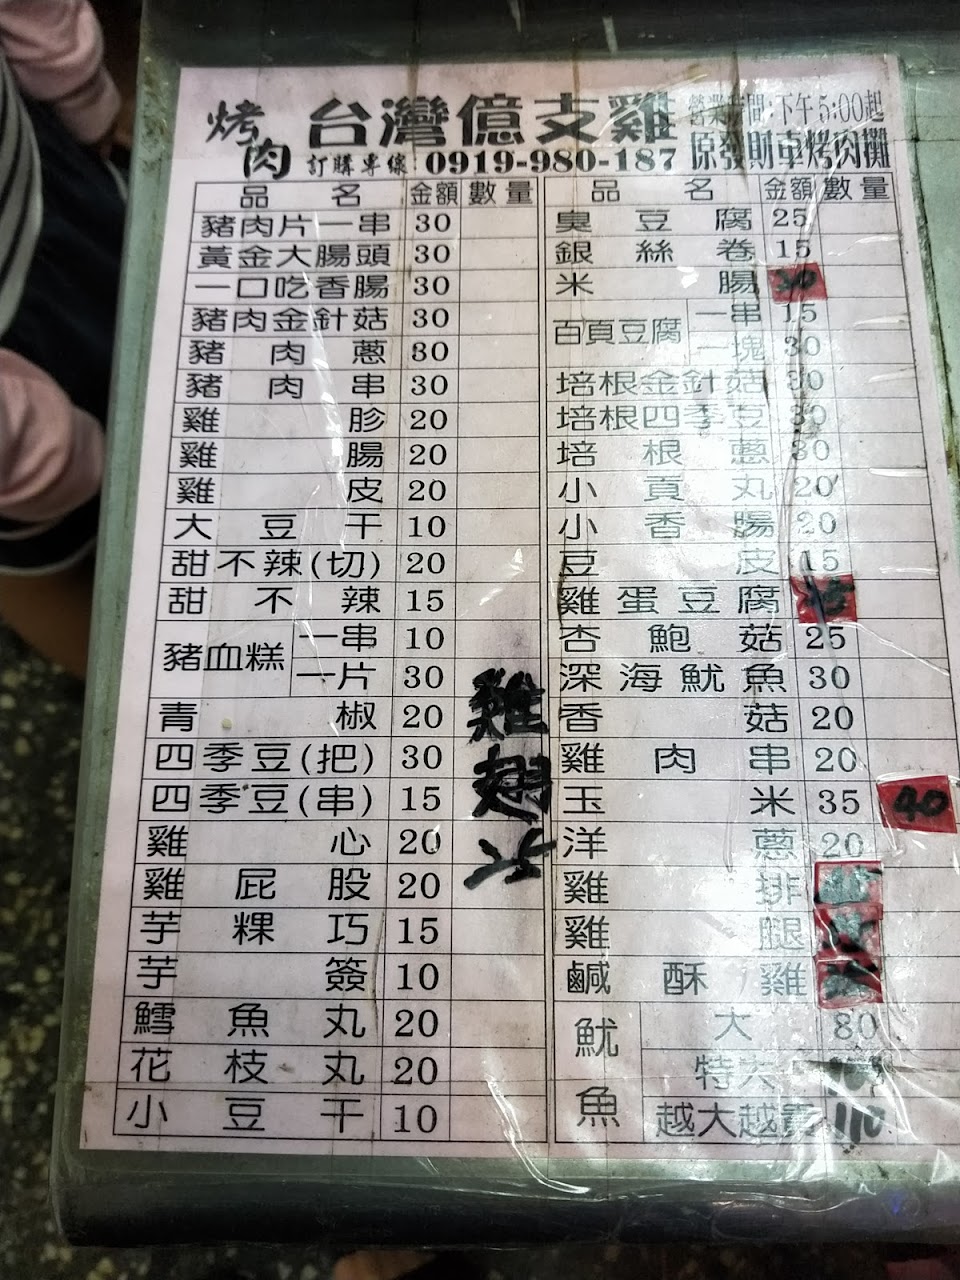 烤肉 台灣億支雞 營業時間:下午5:00起
訂購專線:0919-980-187 原發財車烤肉攤
品名 金額 數量
豬肉片一串 30
黃金大腸頭 30
一口吃香腸 30
豬肉金針菇 30
豬肉蔥 30
豬肉串 30
雞胗 20
雞腸 20
雞皮 20
大豆干 10
甜不辣(切) 20
甜不辣 15
豬血糕 一串 10
一片 30
青椒 20
四季豆(把) 30
四季豆(串) 15
雞心 20
雞屁股 20
芋粿巧 15
芋簽 10
鱈魚丸 20
花枝丸 20
小豆干 10
雞翅
品名 金額 數量
臭豆腐 25
銀絲卷 15
米腸 30
百頁豆腐 一串 15
一塊 30
培根金針菇 30
培根四季豆 30
培根蔥 30
小貢丸 20
小香腸 20
豆皮 15
雞蛋豆腐
杏鮑菇 25
深海魷魚 30
香菇 20
雞肉串 20
玉米 35 40
洋蔥 20
雞排
雞腿
鹹酥雞
魷魚 大 80
特大
越大越貴 110